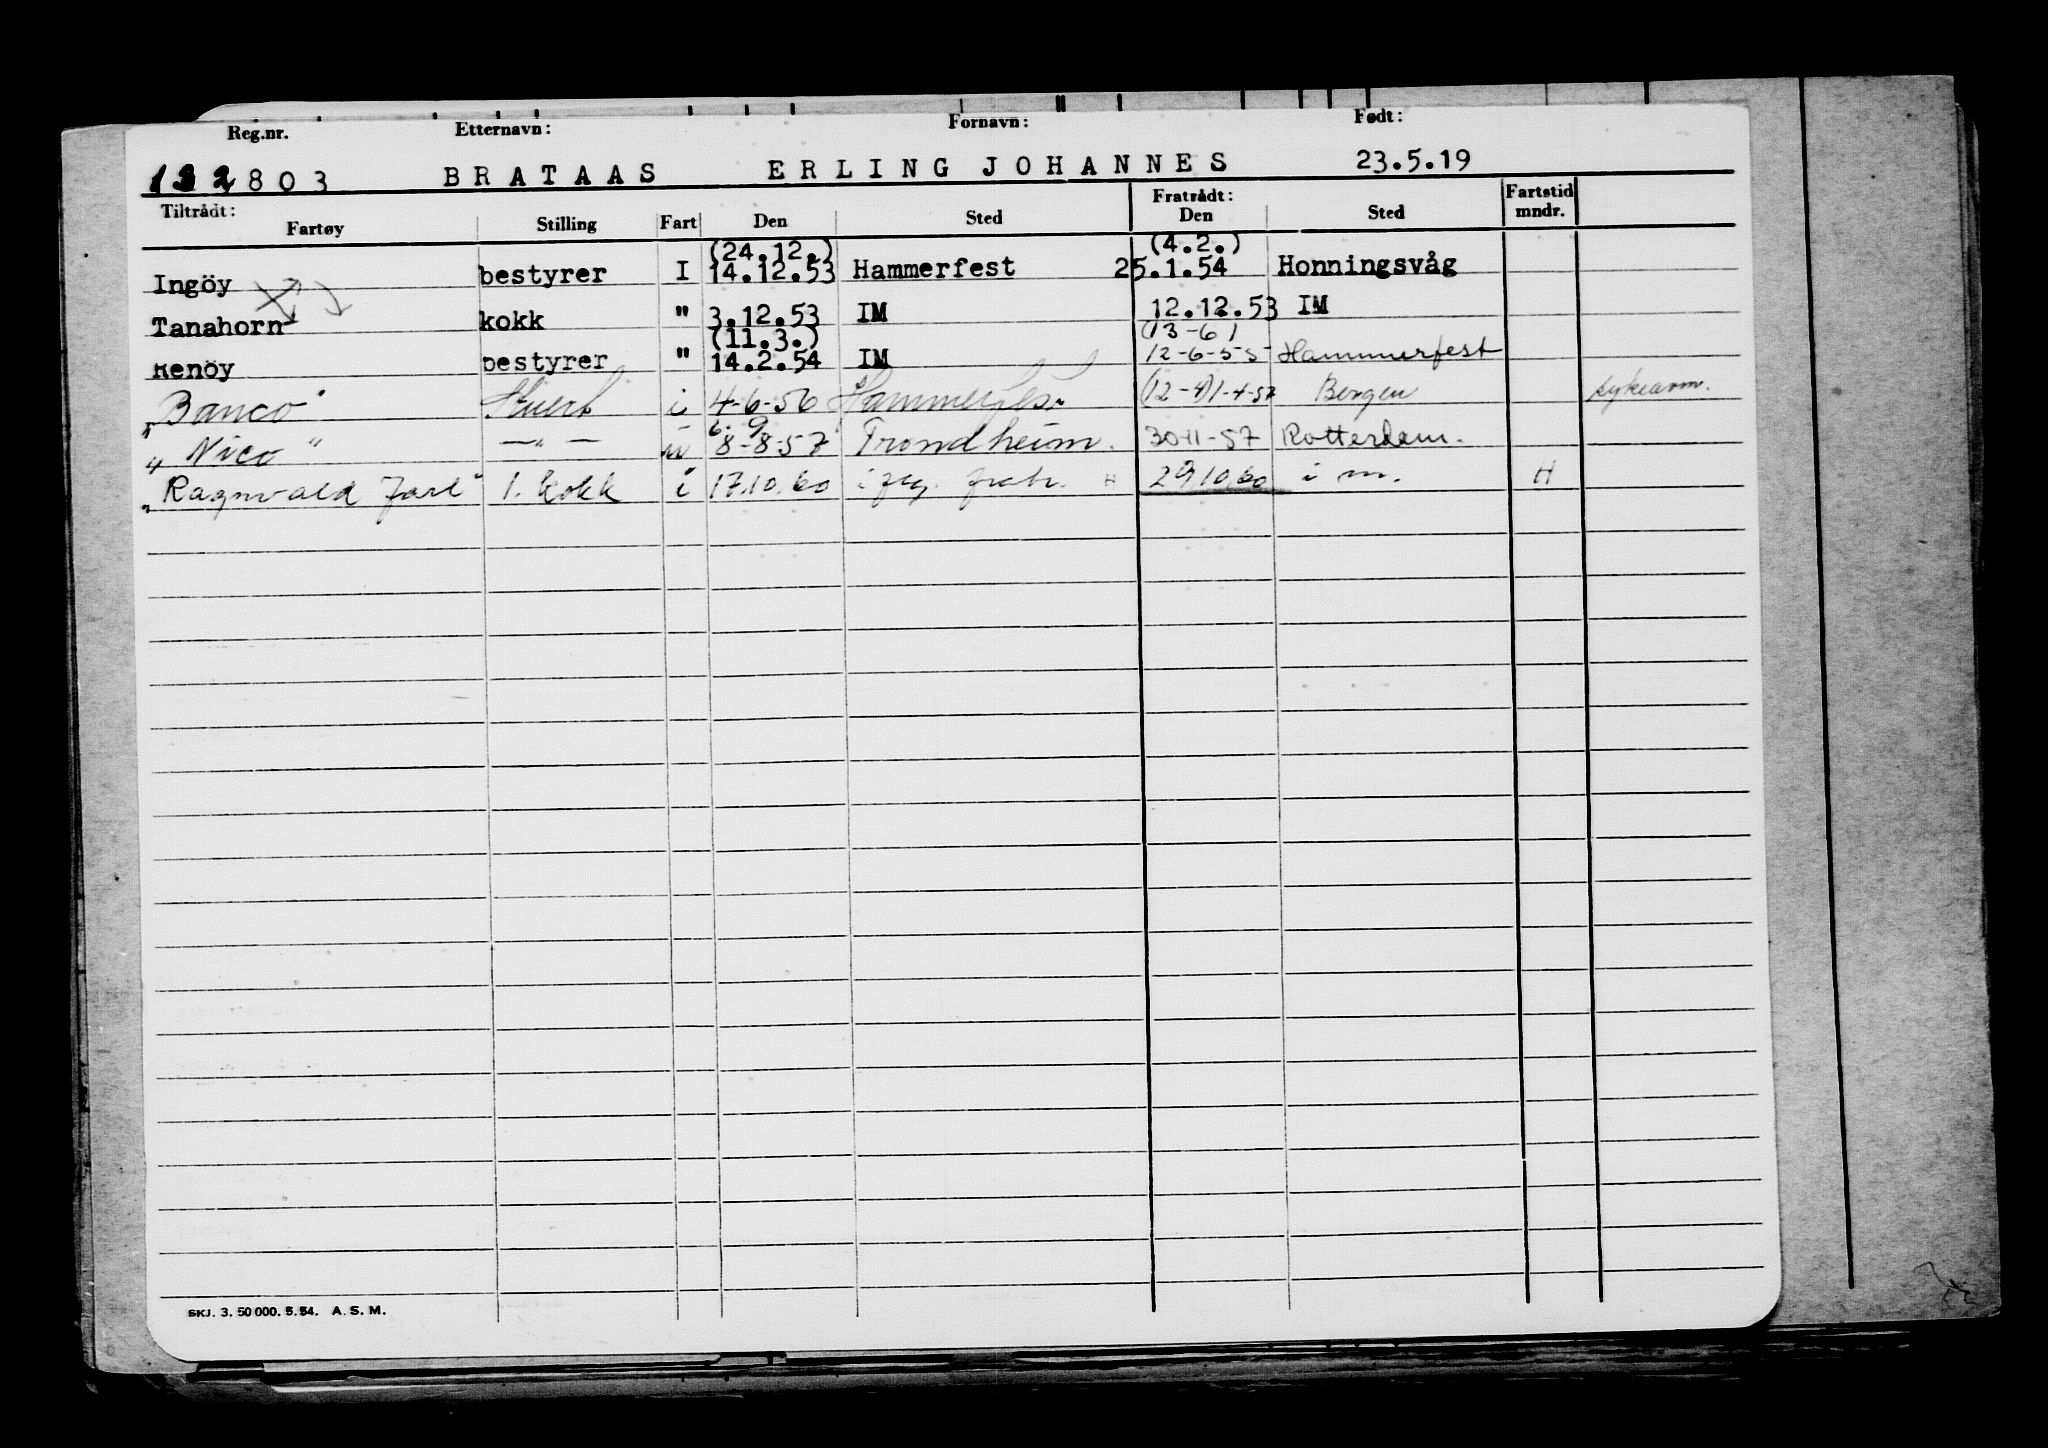 Reg.nr. Etternavn: Fornavn: Født:
132803 BRATAAS ERLING JOHANNES 23.5.19
Tiltrådt: Fratrådt: Fartstid
Fartøy Stilling Fart Den Sted Den Sted mndr.
(24.12.) (4.2.)
Ingöy bestyrer I 14.12.53 Hammerfest 25.1.54 Honningsvåg
Tanahorn kokk " 3.12.53 IM 12.12.53 IM
(11.3.) (13-6)
Renöy bestyrer " 14.2.54 IM 12-6-55 Hammerfest
"Banco" Stuert i 4-6-56 Hammerfest (12-4) 1-4-57 Bergen
6. 9
"Nico" —"— u 8-8-57 Trondheim. 30-11-57 Rotterdam.
"Ragnvald Jarl" 1. kokk i 17.10.60 i fra. H 29.10.60 i m. H
SKJ. 3. 50 000. 5. 54. A. S. M.